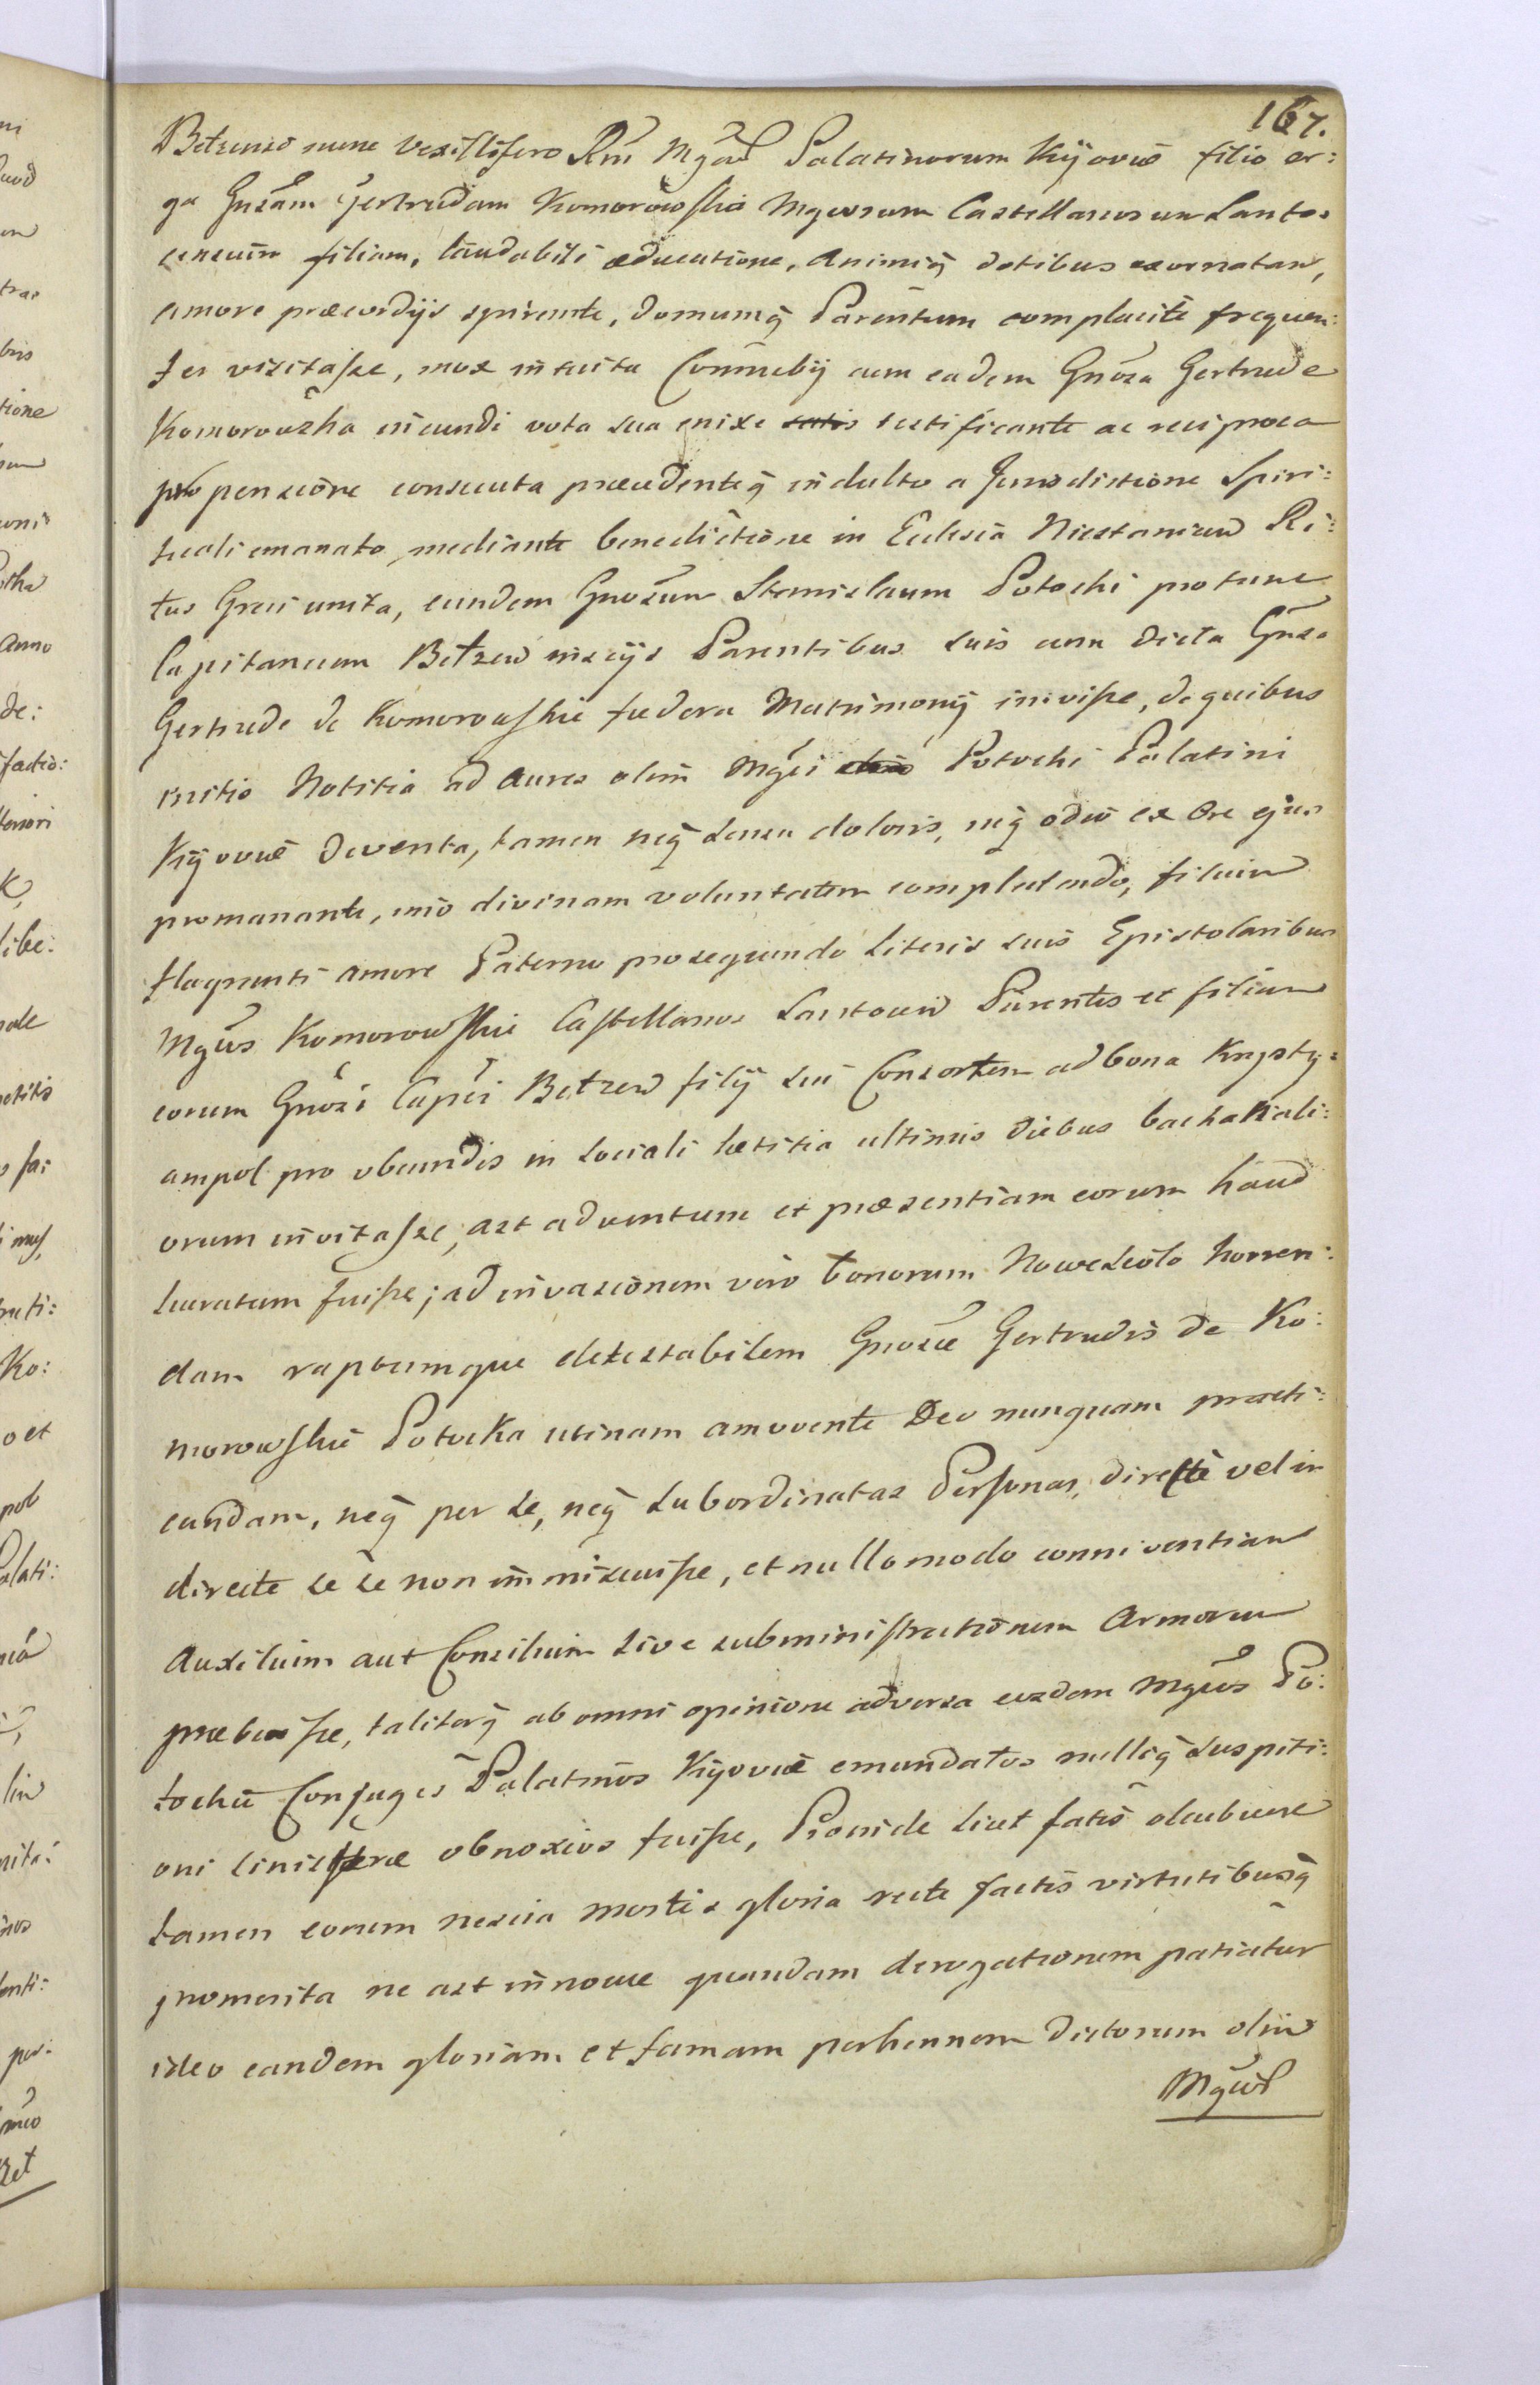 167.
Bełzensi nunc Vexillifero Rñi Mgcor̃ Palatinorum Kijoviæ filio er:
ga Gnsãm Gertrudam Komorowska Mgcorum Castellanorum Santo=
censium filiam, laudabili æducatione, animiq̃ dotibus exornatam,
amore præcordijs spirante, domumq̃ Parentum complacite frequen:
ter visitasse, mox intuitu Connubij cum eadem Gnõsa Gertrude
Komorowska ineundi vota sua enixe testificante ac reciproca
propensione consecuta præcedenteq̃ indulto a Jurisdictione Spiri:
tuali emanato, mediante benedictione in Eclesia Niestanicen Ri:
tus Greci unita, eundem Gnosum Stanislaum Potocki pro tunc
Capitaneum Bełzen insciys Parentibus suis cum dicta Gnsa
Gertrude de Komorowskie fædera Matrimonij inivisse, de quibus
initis Notitia ad aures olim Mgci Potocki Palatini
Kijoviæ deventa, tamen neq̃ sensu doloris, neq̃ odio ex Ore ejus
promanante, imo divinam voluntatem complectendo, filium
flagranti amore Paterno prosequendo Literis suis Epistolaribus
Mgcos Komorowskie Castellanos Santocen Parentes et filiam
eorum Gnosi Capnei Bełzen filij sui Consortem ad bona Krysty=
ampol pro obeundis in sociali lætitia ultimis diebus bachanali:
orum invitasse, ast adventum et præsentiam eorum haud
securatum fuisse; ad invasionem vero bonorum Nowesioło horren:
dam raptumque detestabilem Gnosæ Gertrudis de Ko:
morowskie Potocka utinam amovente Deo nunquam practi:
candam, neq̃ per se, neq̃ subordinatas Personas, directe vel in
directe se se non immiscuisse, et nullo modo conniventiam
Auxilium aut Consilium sive subministrationem Armorum
præbuisse, taliterq̃ ab omni opinione adversa eosdem Mgcos Po:
tockie Conjuges Palatinos Kijoviæ emundatos nulliq̃ suspiti:
oni sinistræ obnoxios fuisse, Proinde licet fatis occubuere
tamen eorum nescia mortis gloria recte factis virtutibusq̃
promerita ne ast innocue quandam derogationem patiatur
ideo eandem gloriam et famam perhennem dictorum olim
Mgcor̃